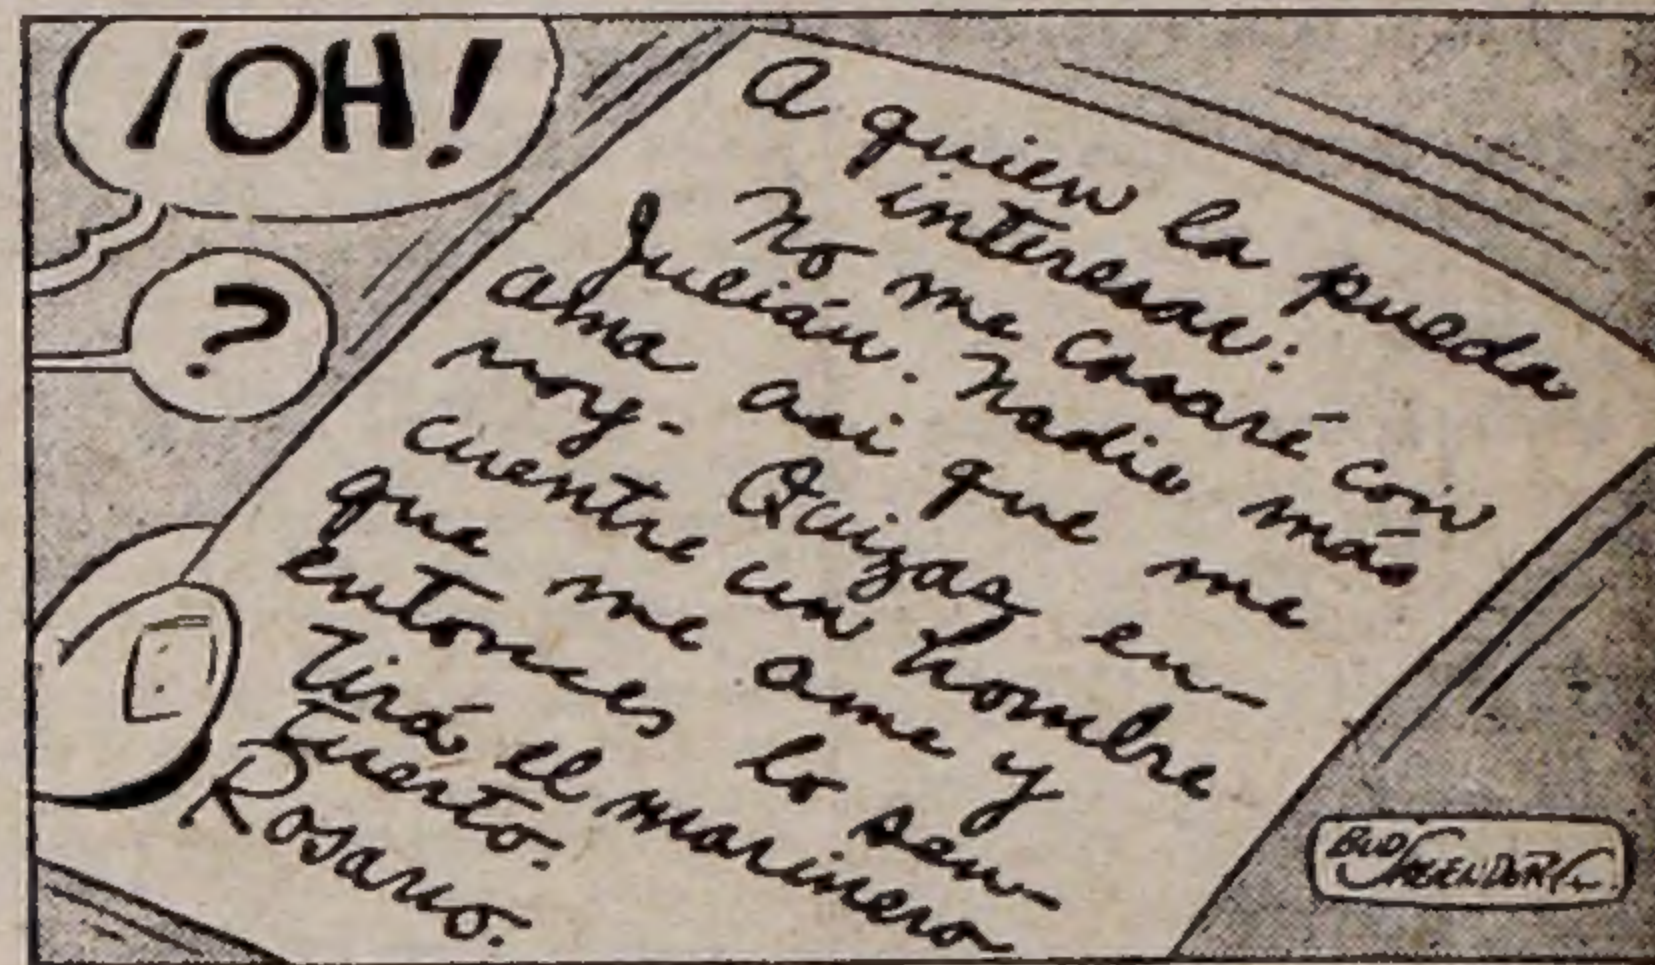 ¡OH!
?
A quien la pueda
interesar:
No me casaré con
Julián. Nadie más
ama asi que me
voy. Quizas en-
cuentre un hombre
que me ame y
entonces lo sen-
tirá el marinero
tuerto.
Rosario.
BUD SAGENDORF